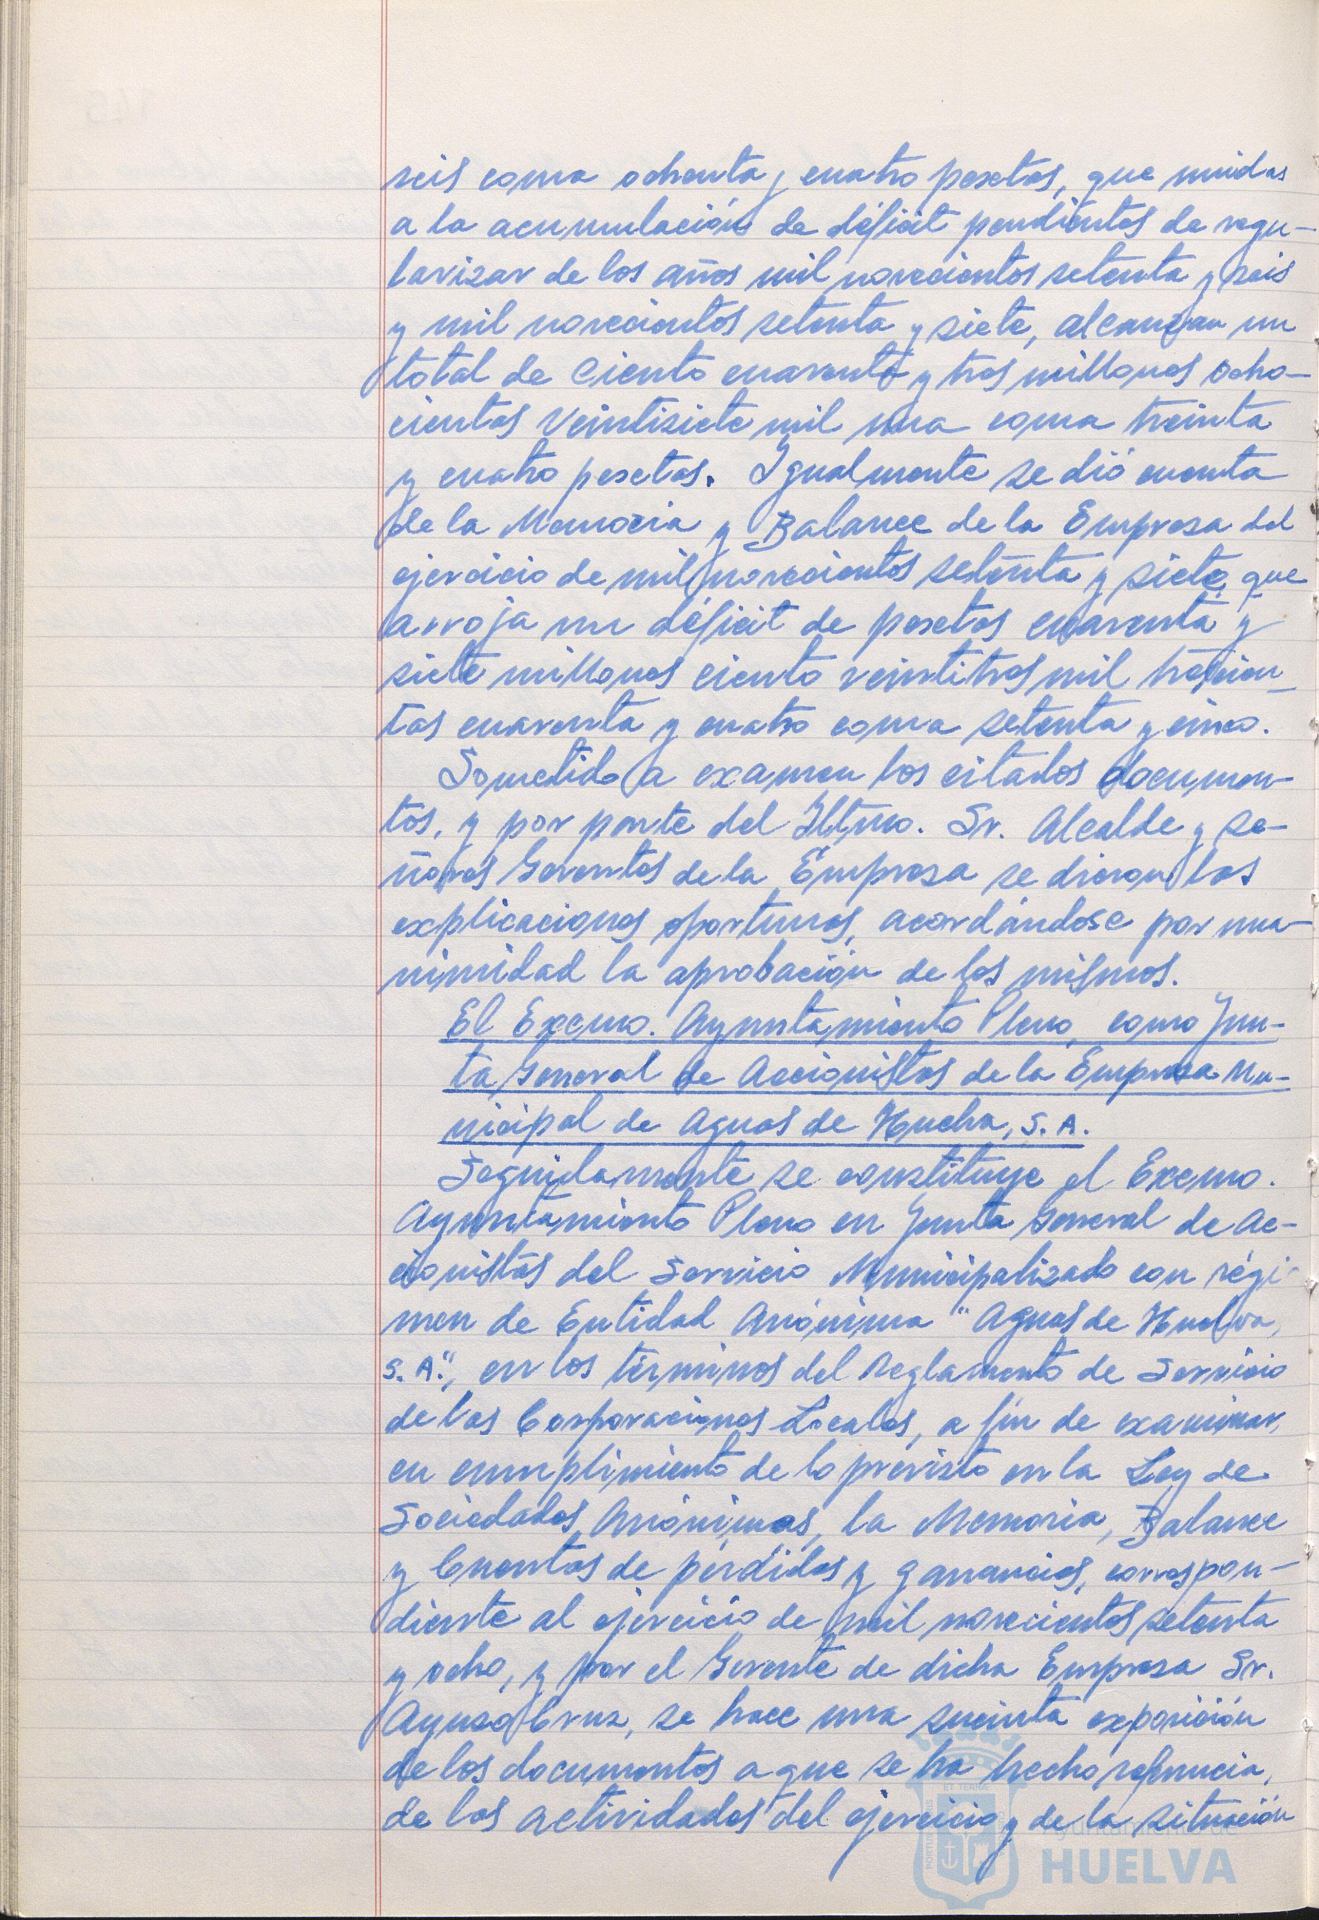 seis coma ochenta y cuatro pesetas, que unidas
a la acumulación de déficit pendientes de regu-
larizar de los años mil novecientos setenta y seis
y mil novecientos setenta y siete, alcanzan un
total de Ciento cuarenta y tres millones ocho-
cientas veintisiete mil una coma treinta
y cuatro pesetas. Igualmente se dió cuenta
de la Memoria y Balance de la Empresa del
ejercicio de mil novecientos setenta y siete, que
arroja un déficit de pesetas cuarenta y
siete millones ciento veintitres mil trescien-
tas cuarenta y cuatro coma setenta y cinco.
Sometido a examen los citados documen-
tos, y por parte del Iltmo. Sr. Alcalde y se-
ñores Gerentes de la Empresa se dieron las
explicaciones oportunas, acordándose por una-
nimidad la aprobación de los mismos.
El Excmo. Ayuntamiento Pleno, como Jun-
ta General de Accionistas de la Empresa Mu-
nicipal de Aguas de Huelva, S.A.
Seguidamente se constituye el Excmo.
Ayuntamiento Pleno en Junta General de Ac-
cionistas del Servicio Municipalizado con régi-
men de Entidad Anónima "Aguas de Huelva,
S.A.", en los términos del Reglamento de Servicio
de las Corporaciones Locales, a fin de examinar,
en cumplimiento de lo previsto en la Ley de
Sociedades Anónimas, la Memoria, Balance
y Cuentas de pérdidas y ganancias, correspon-
diente al ejercicio de mil novecientos setenta
y ocho, y por el Gerente de dicha Empresa Sr.
Ayuso Cruz, se hace una sucinta exposición
de los documentos a que se ha hecho referencia,
de las actividades del ejercicio y de la situación
Ayuntamiento de
HUELVA